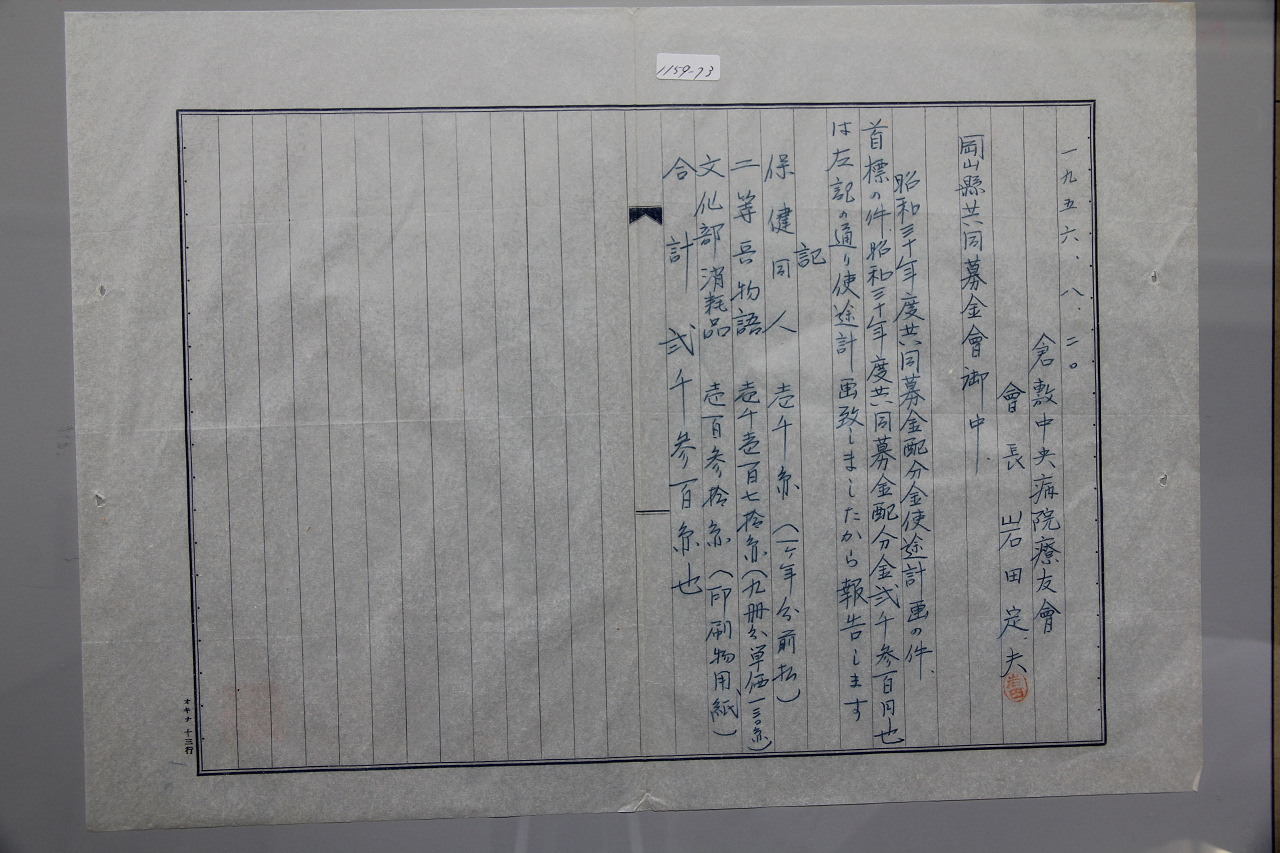 1159-73
一九五六、八、二〇
倉敷中央病院療友會
會長 岩田定夫
岡山縣共同募金會御中
昭和三十年度共同募金配分金使途計画の件
首標の件、昭和三十年度共同募金配分金弐千参百円也
は左記の通り使途計画致しましたから報告します
記
保健同人 壱千円（一ヶ年分前払）
二等兵物語 壱千壱百七拾円（九册分単価一三〇円）
文化部消耗品 壱百参拾円（印刷物用紙）
合計 弐千参百円也
オキナ 十三行